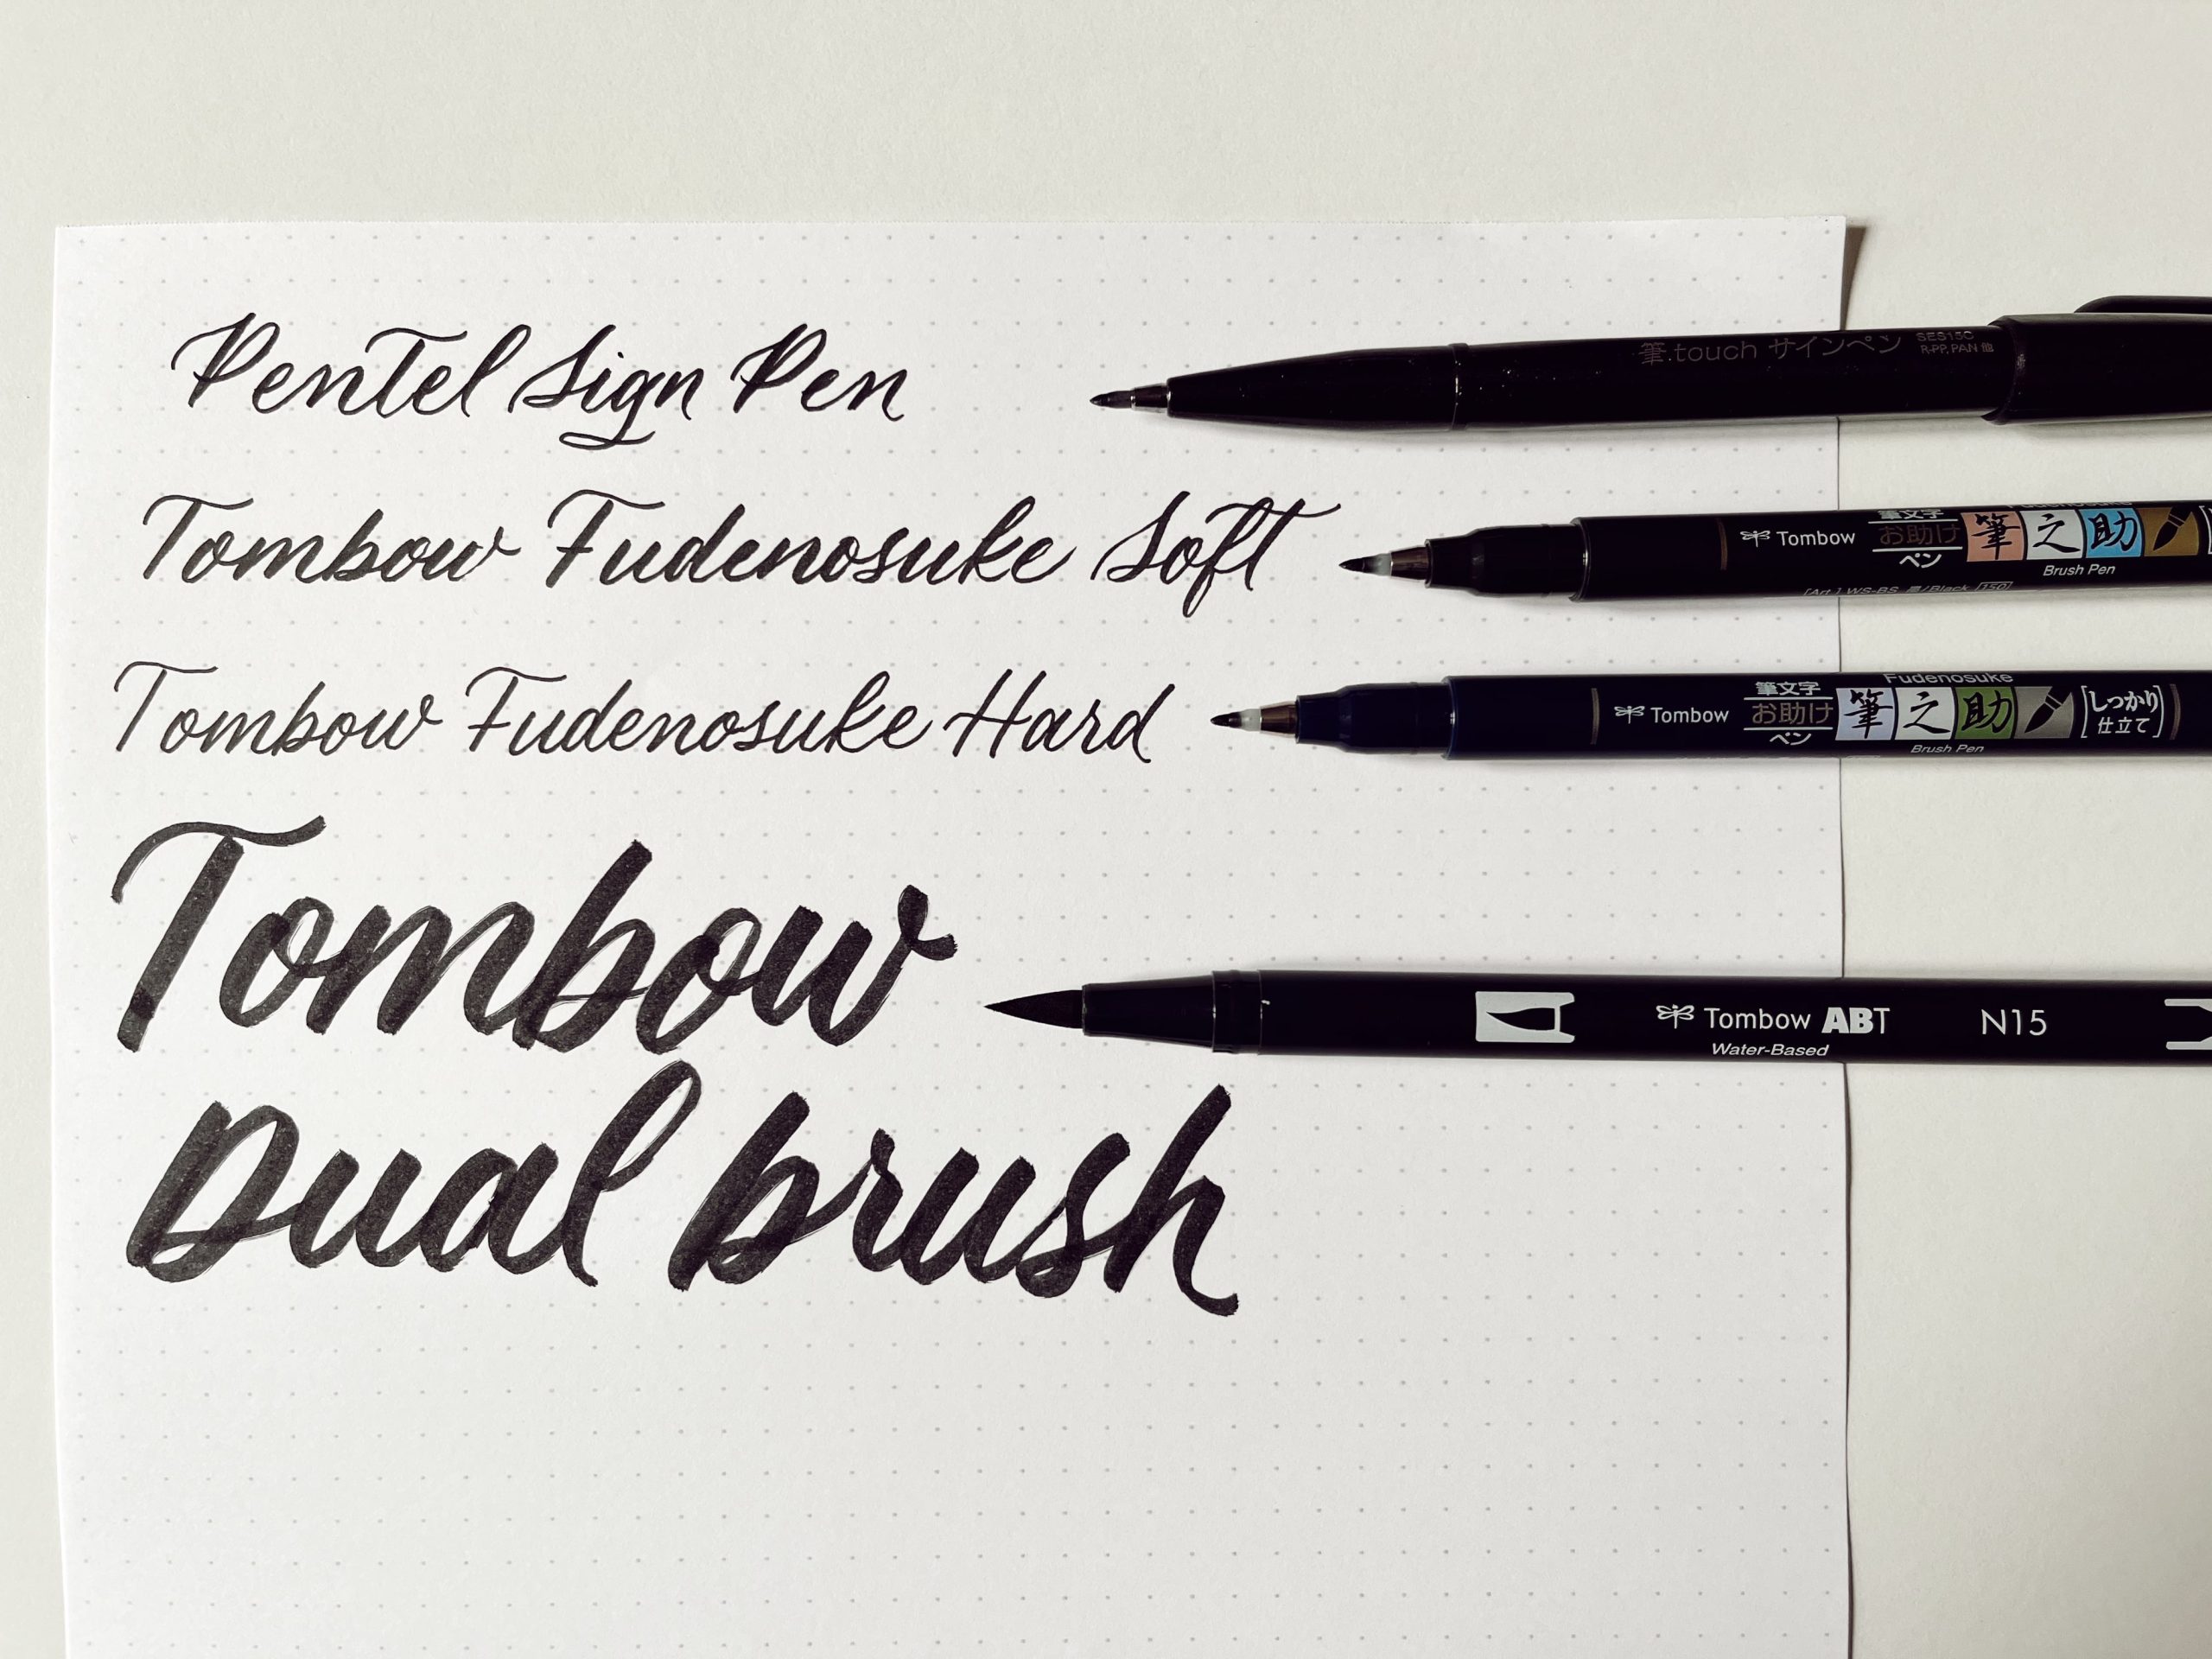 Pentel Sign Pen
筆touch サインペン SES15C
R-PP,PAN 他
Tombow Fudenosuke Soft
Tombow 筆文字 お助け ペン 筆之助
Brush Pen
Tombow Fudenosuke Hard
Fudenosuke
Tombow 筆文字 お助け ペン 筆之助 [しっかり仕立て]
Brush Pen
Tombow
Tombow ABT N15
Water-Based
Dual brush